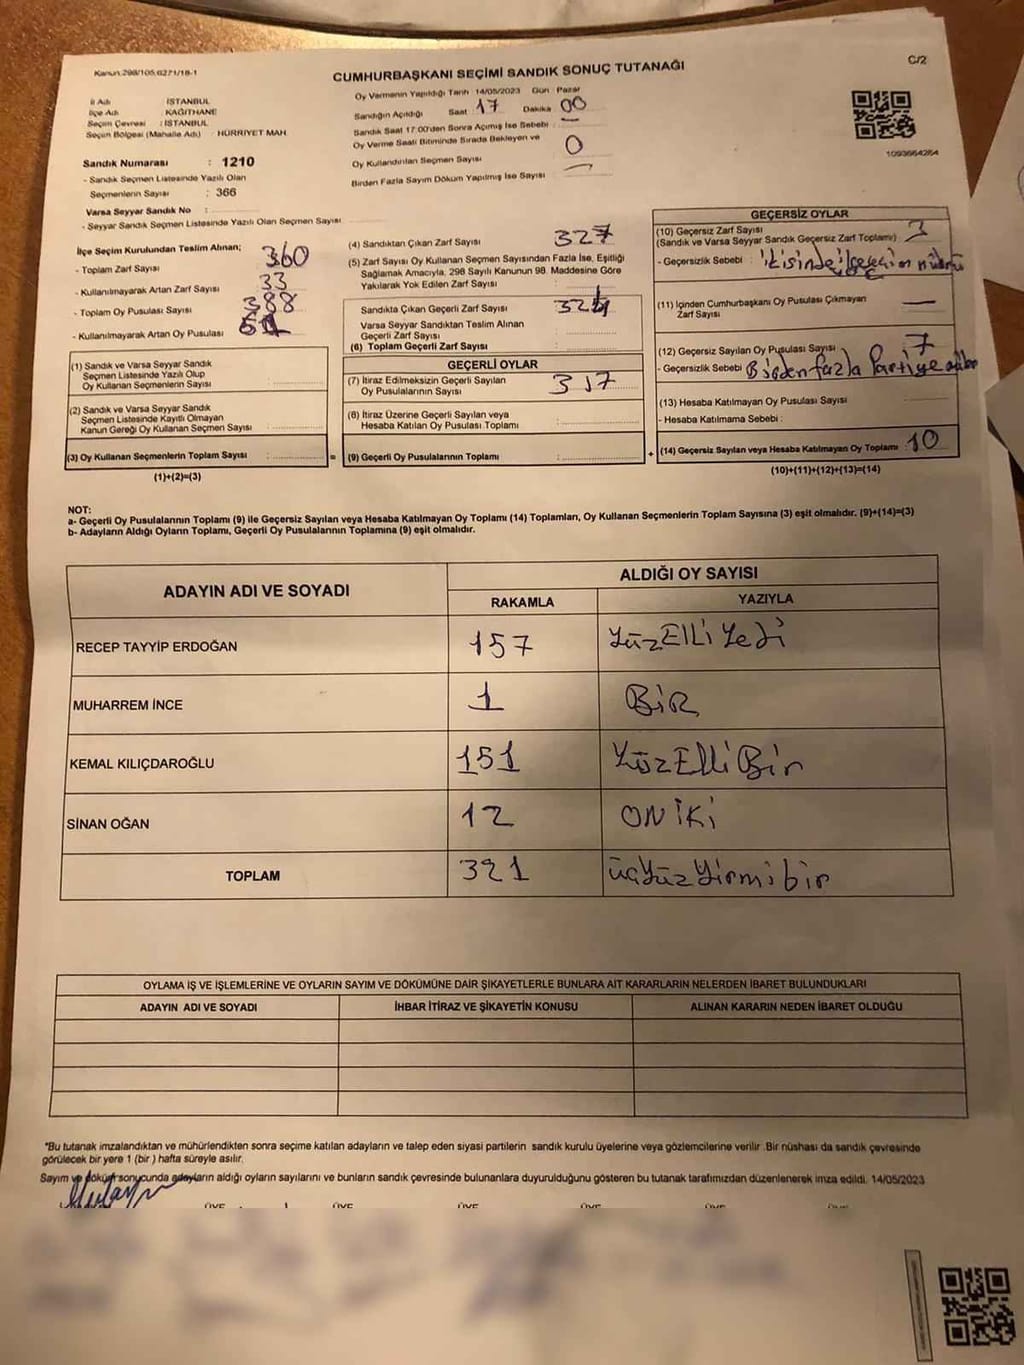 Kanun:298/105,6271/18-1
CUMHURBAŞKANI SEÇİMİ SANDIK SONUÇ TUTANAĞI
C/2
İl Adı : İSTANBUL
İlçe Adı : KAĞITHANE
Seçim Çevresi : İSTANBUL
Seçim Bölgesi (Mahalle Adı) : HÜRRİYET MAH
Oy Vermenin Yapıldığı Tarih 14/05/2023 Gün Pazar
Sandığın Açıldığı Saat 17 Dakika 00
Sandık Saat 17:00'den Sonra Açılmış İse Sebebi : —
Oy Verme Saati Bitiminde Sırada Bekleyen ve
Oy Kullandırılan Seçmen Sayısı 0
Birden Fazla Sayım Döküm Yapılmış İse Sayısı —
1093664264
Sandık Numarası : 1210
- Sandık Seçmen Listesinde Yazılı Olan
Seçmenlerin Sayısı : 366
Varsa Seyyar Sandık No :
- Seyyar Sandık Seçmen Listesinde Yazılı Olan Seçmen Sayısı
İlçe Seçim Kurulundan Teslim Alınan;
- Toplam Zarf Sayısı 360
- Kullanılmayarak Artan Zarf Sayısı 33
- Toplam Oy Pusulası Sayısı 388
- Kullanılmayarak Artan Oy Pusulası
(1) Sandık ve Varsa Seyyar Sandık
Seçmen Listesinde Yazılı Olup
Oy Kullanan Seçmenlerin Sayısı :
(2) Sandık ve Varsa Seyyar Sandık
Seçmen Listesinde Kayıtlı Olmayan
Kanun Gereği Oy Kullanan Seçmen Sayısı :
(3) Oy Kullanan Seçmenlerin Toplam Sayısı : =
(1)+(2)=(3)
(4) Sandıktan Çıkan Zarf Sayısı 327
(5) Zarf Sayısı Oy Kullanan Seçmen Sayısından Fazla İse, Eşitliği
Sağlamak Amacıyla, 298 Sayılı Kanunun 98. Maddesine Göre
Yakılarak Yok Edilen Zarf Sayısı :
Sandıkta Çıkan Geçerli Zarf Sayısı 324
Varsa Seyyar Sandıktan Teslim Alınan
Geçerli Zarf Sayısı :
(6) Toplam Geçerli Zarf Sayısı :
GEÇERLİ OYLAR
(7) İtiraz Edilmeksizin Geçerli Sayılan
Oy Pusulalarının Sayısı : 317
(8) İtiraz Üzerine Geçerli Sayılan veya
Hesaba Katılan Oy Pusulası Toplamı :
(9) Geçerli Oy Pusulalarının Toplamı : +
GEÇERSİZ OYLAR
(10) Geçersiz Zarf Sayısı 3
(Sandık ve Varsa Seyyar Sandık Geçersiz Zarf Toplamı)
- Geçersizlik Sebebi : ikisinde ilçe seçim mührü
yok
(11) İçinden Cumhurbaşkanı Oy Pusulası Çıkmayan
Zarf Sayısı —
(12) Geçersiz Sayılan Oy Pusulası Sayısı 7
- Geçersizlik Sebebi Birden fazla Partiye
(13) Hesaba Katılmayan Oy Pusulası Sayısı
- Hesaba Katılmama Sebebi :
(14) Geçersiz Sayılan veya Hesaba Katılmayan Oy Toplamı : 10
(10)+(11)+(12)+(13)=(14)
NOT:
a- Geçerli Oy Pusulalarının Toplamı (9) ile Geçersiz Sayılan veya Hesaba Katılmayan Oy Toplamı (14) Toplamları, Oy Kullanan Seçmenlerin Toplam Sayısına (3) eşit olmalıdır. (9)+(14)=(3)
b- Adayların Aldığı Oyların Toplamı, Geçerli Oy Pusulalarının Toplamına (9) eşit olmalıdır.
ADAYIN ADI VE SOYADI ALDIĞI OY SAYISI
RAKAMLA YAZIYLA
RECEP TAYYİP ERDOĞAN 157 YüzElli Yedi
MUHARREM İNCE 1 BİR
KEMAL KILIÇDAROĞLU 151 YüzElli Bir
SİNAN OĞAN 12 ON İKİ
TOPLAM 321 üçyüz yirmi bir
OYLAMA İŞ VE İŞLEMLERİNE VE OYLARIN SAYIM VE DÖKÜMÜNE DAİR ŞİKAYETLERLE BUNLARA AİT KARARLARIN NELERDEN İBARET BULUNDUKLARI
ADAYIN ADI VE SOYADI İHBAR İTİRAZ VE ŞİKAYETİN KONUSU ALINAN KARARIN NEDEN İBARET OLDUĞU
*Bu tutanak imzalandıktan ve mühürlendikten sonra seçime katılan adayların ve talep eden siyasi partilerin sandık kurulu üyelerine veya gözlemcilerine verilir .Bir nüshası da sandık çevresinde
görülecek bir yere 1 (bir ) hafta süreyle asılır.
Sayım ve döküm sonucunda adayların aldığı oyların sayılarını ve bunların sandık çevresinde bulunanlara duyurulduğunu gösteren bu tutanak tarafımızdan düzenlenerek imza edildi. 14/05/2023
ÜYE ÜYE ÜYE ÜYE ÜYE ÜYE